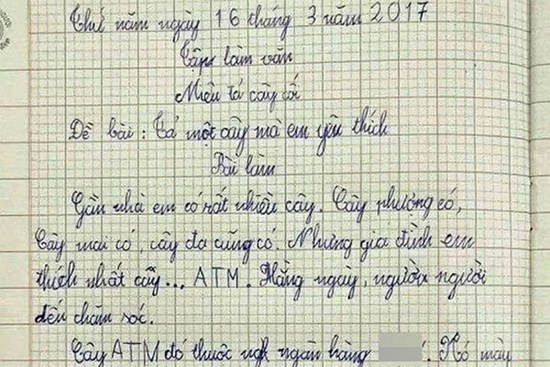 Thứ năm ngày 16 tháng 3 năm 2017
Tập làm văn
Miêu tả cây cối
Đề bài: Tả một cây mà em yêu thích
Bài làm
Gần nhà em có rất nhiều cây. Cây phượng có,
Cây mai có, cây đa cũng có. Nhưng gia đình em
thích nhất cây... ATM. Hằng ngày, người người
đến chăm sóc.
Cây ATM đó thuộc ngân hàng Nó màu